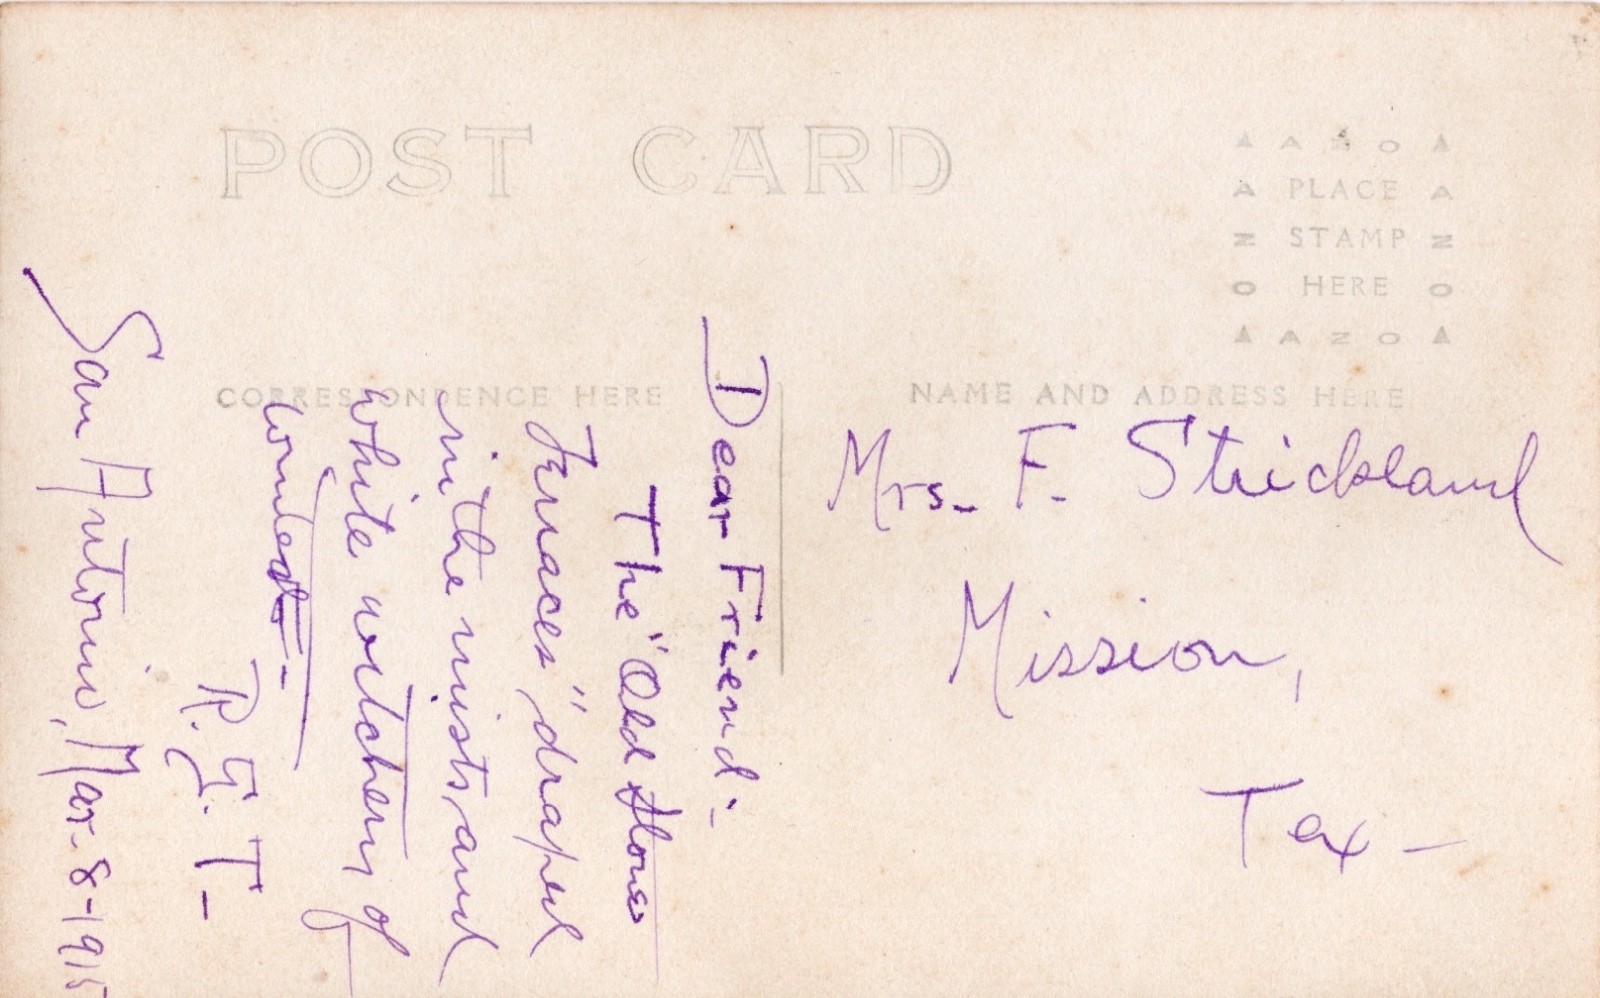 POST CARD
AZO
PLACE
STAMP
HERE
AZO
CORRESPONDENCE HERE
NAME AND ADDRESS HERE
San Antonio, Mar-8-1915
Dear Friend:-
The "Old Stone
Terraces" draped
in the mists, and
white witchery of
R.G.T-
Mrs- F- Strickland
Mission,
Tex-